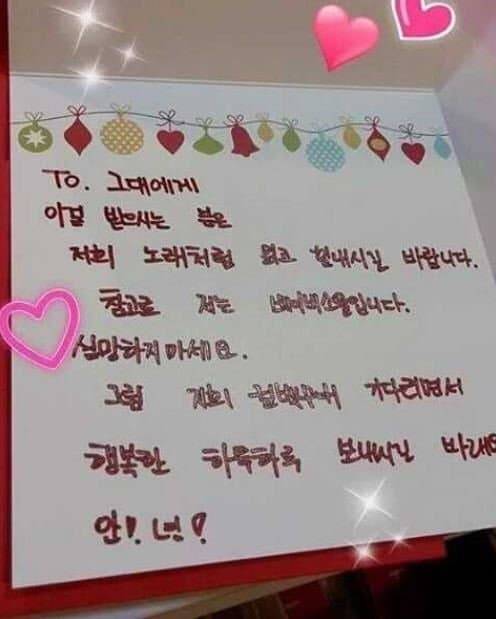 To. 그대에게
이걸 받으시는 분은
저희 노래처럼 웃고 힘내시길 바랍니다.
참고로 저는 베이비소울입니다.
실망하지마세요.
그럼 저희 컴백무대 기다리면서
행복한 하루하루 보내시길 바래요
안! 녕!